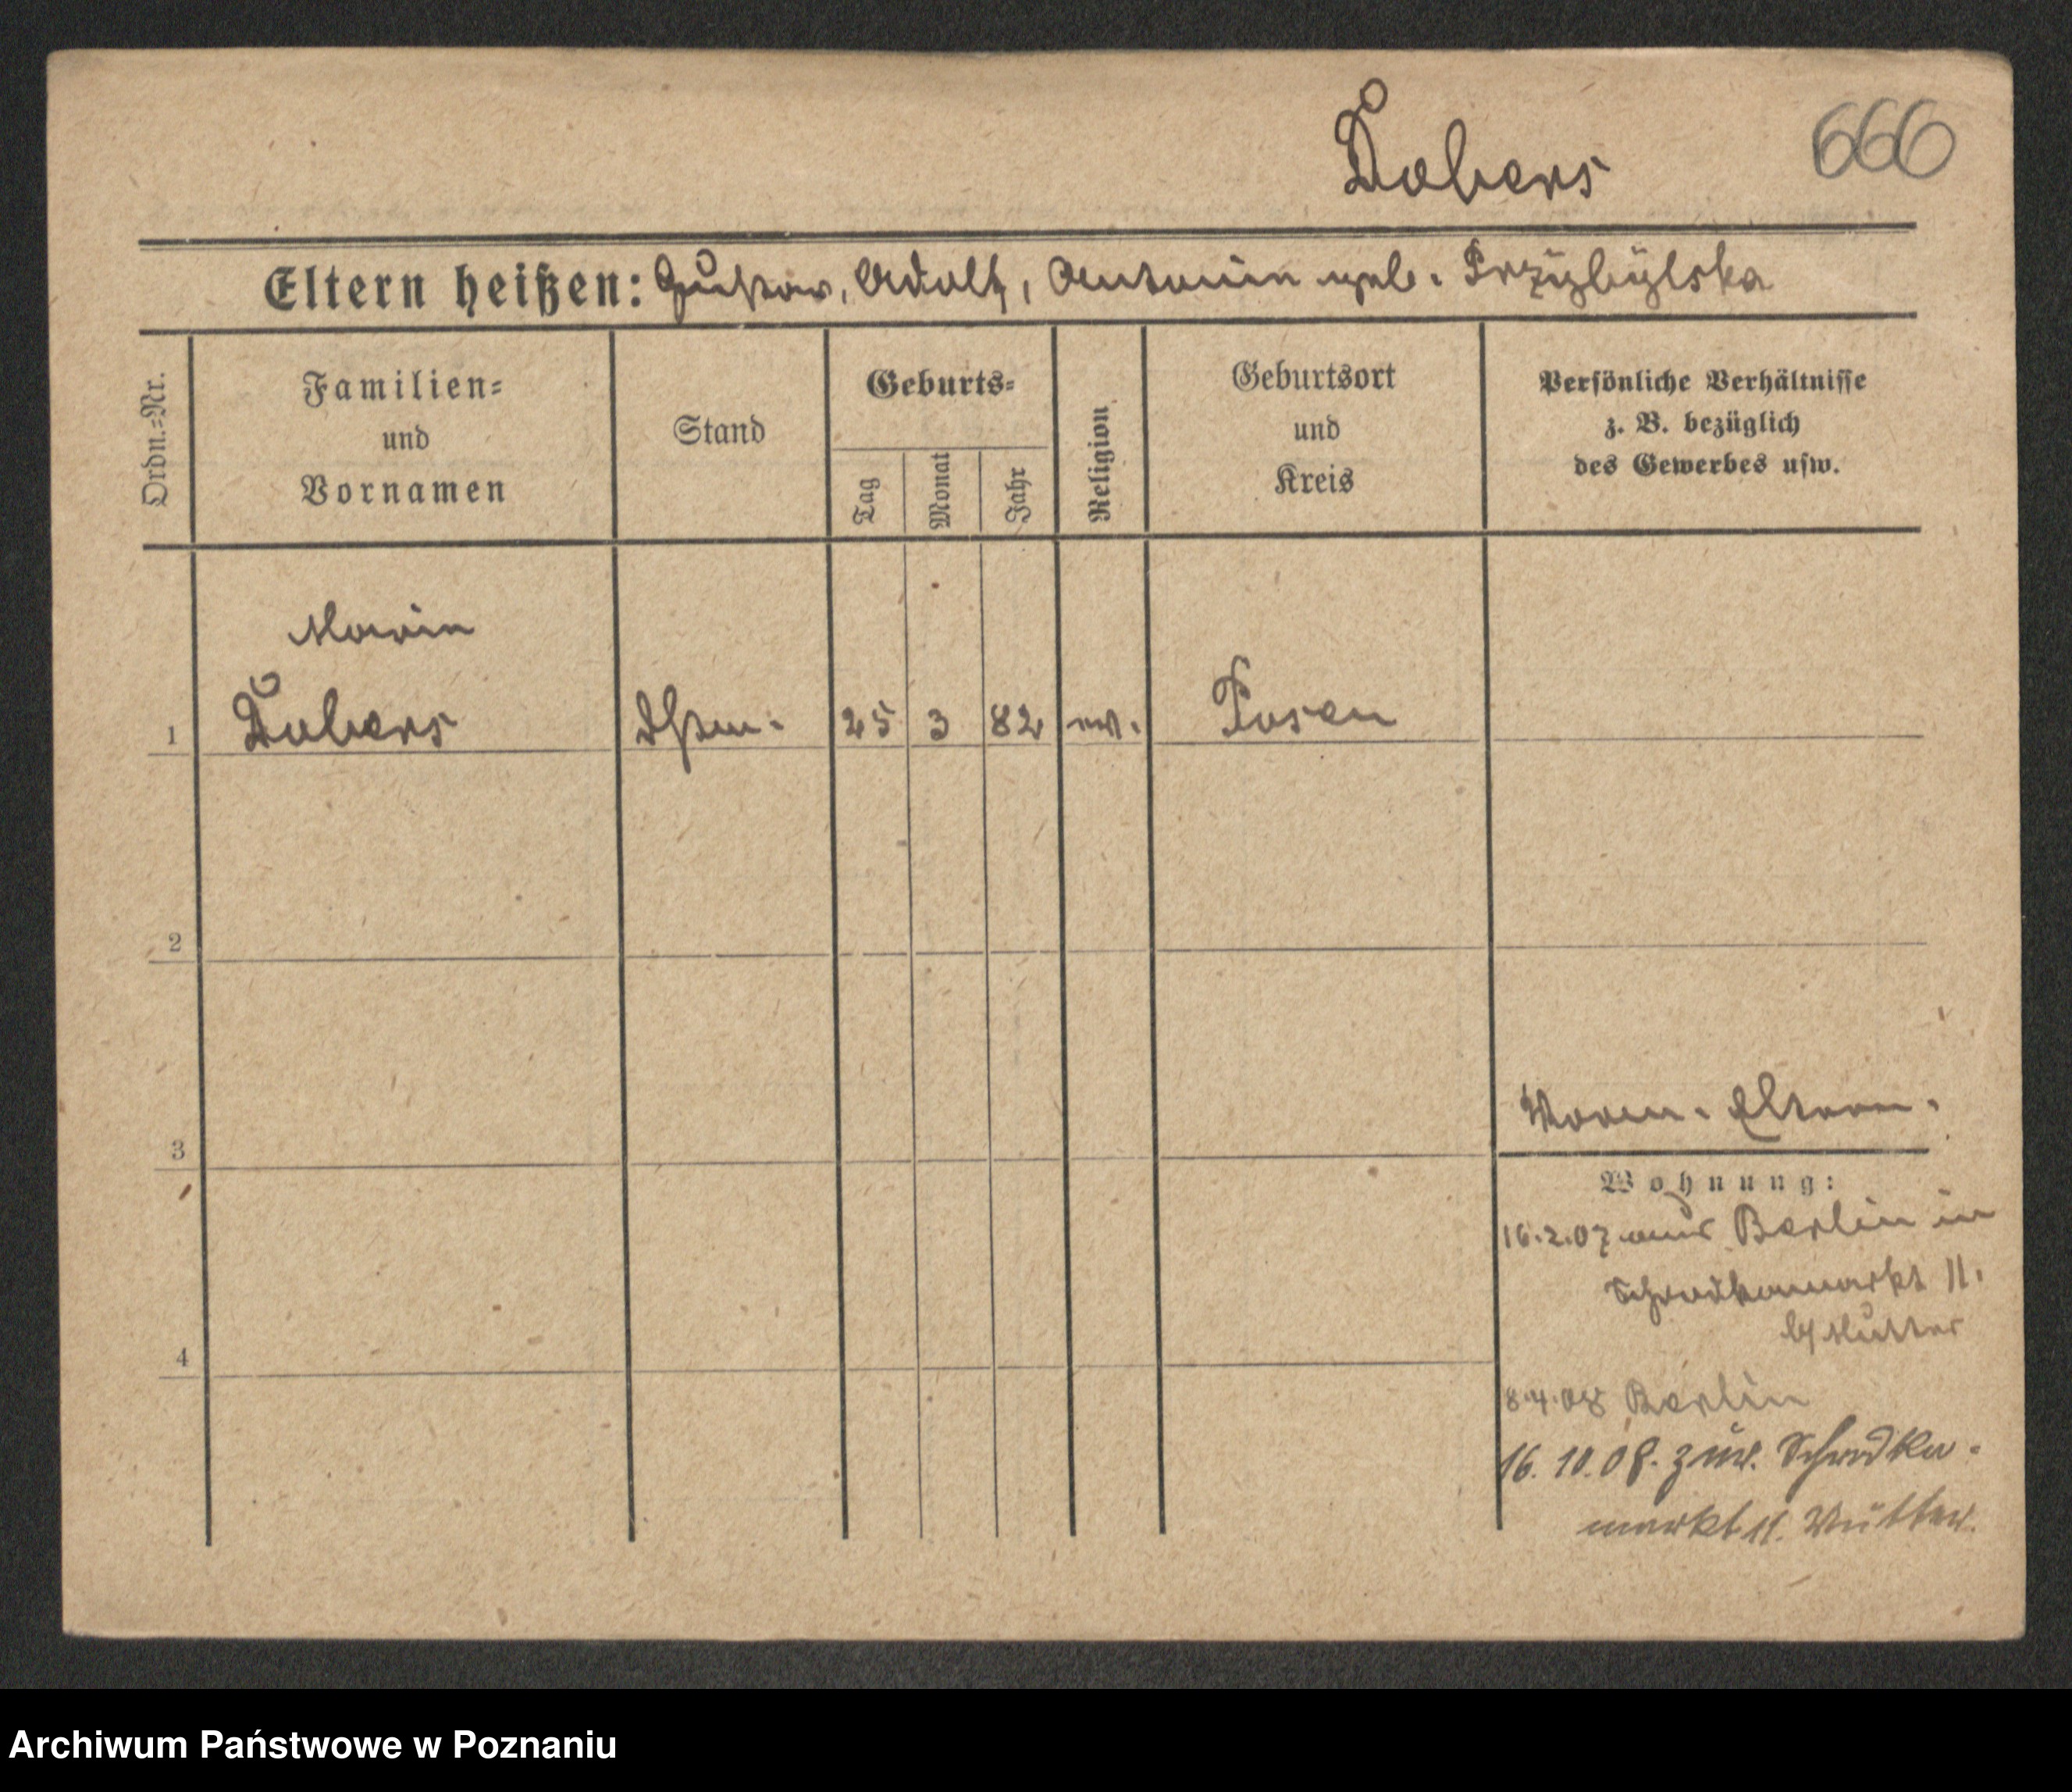 Dobers
666
Eltern heißen: Gustav, Adolf, Antonie geb. Przybylska
Ordn.=Nr.
Familien=
und
Vornamen
Stand
Geburts=
Tag
Monat
Jahr
Religion
Geburtsort
und
Kreis
Persönliche Verhältnisse
z. B. bezüglich
des Gewerbes usw.
Marie
1 Dobers 25 3 82 ev. Posen
2
3
Eltern.
Wohnung:
16.2.07 aus Berlin in
Schrodkamarkt 11.
b/ Mutter
4
8.4.08 Berlin
16.10.08. zur. Schrodka-
markt 11. Mutter.
Archiwum Państwowe w Poznaniu